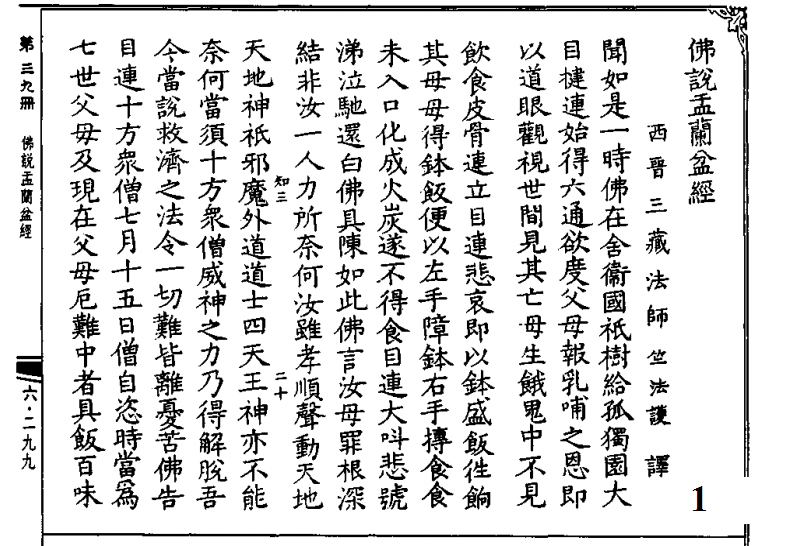 佛說盂蘭盆經
西晉三藏法師竺法護譯
聞如是一時佛在舍衞國祇樹給孤獨園大
目揵連始得六通欲度父母報乳哺之恩即
以道眼觀視世間見其亡母生餓鬼中不見
飲食皮骨連立目連悲哀即以鉢盛飯徃餉
其母母得鉢飯便以左手障鉢右手摶食食
未入口化成火炭遂不得食目連大叫悲號
涕泣馳還白佛具陳如此佛言汝母罪根深
結非汝一人力所奈何汝雖孝順聲動天地
知三
二十
天地神祇邪魔外道道士四天王神亦不能
奈何當須十方衆僧威神之力乃得解脫吾
今當說救濟之法令一切難皆離憂苦佛告
目連十方衆僧七月十五日僧自恣時當為
七世父母及現在父母厄難中者具飯百味
第三九冊 佛說盂蘭盆經
六·二九九
1